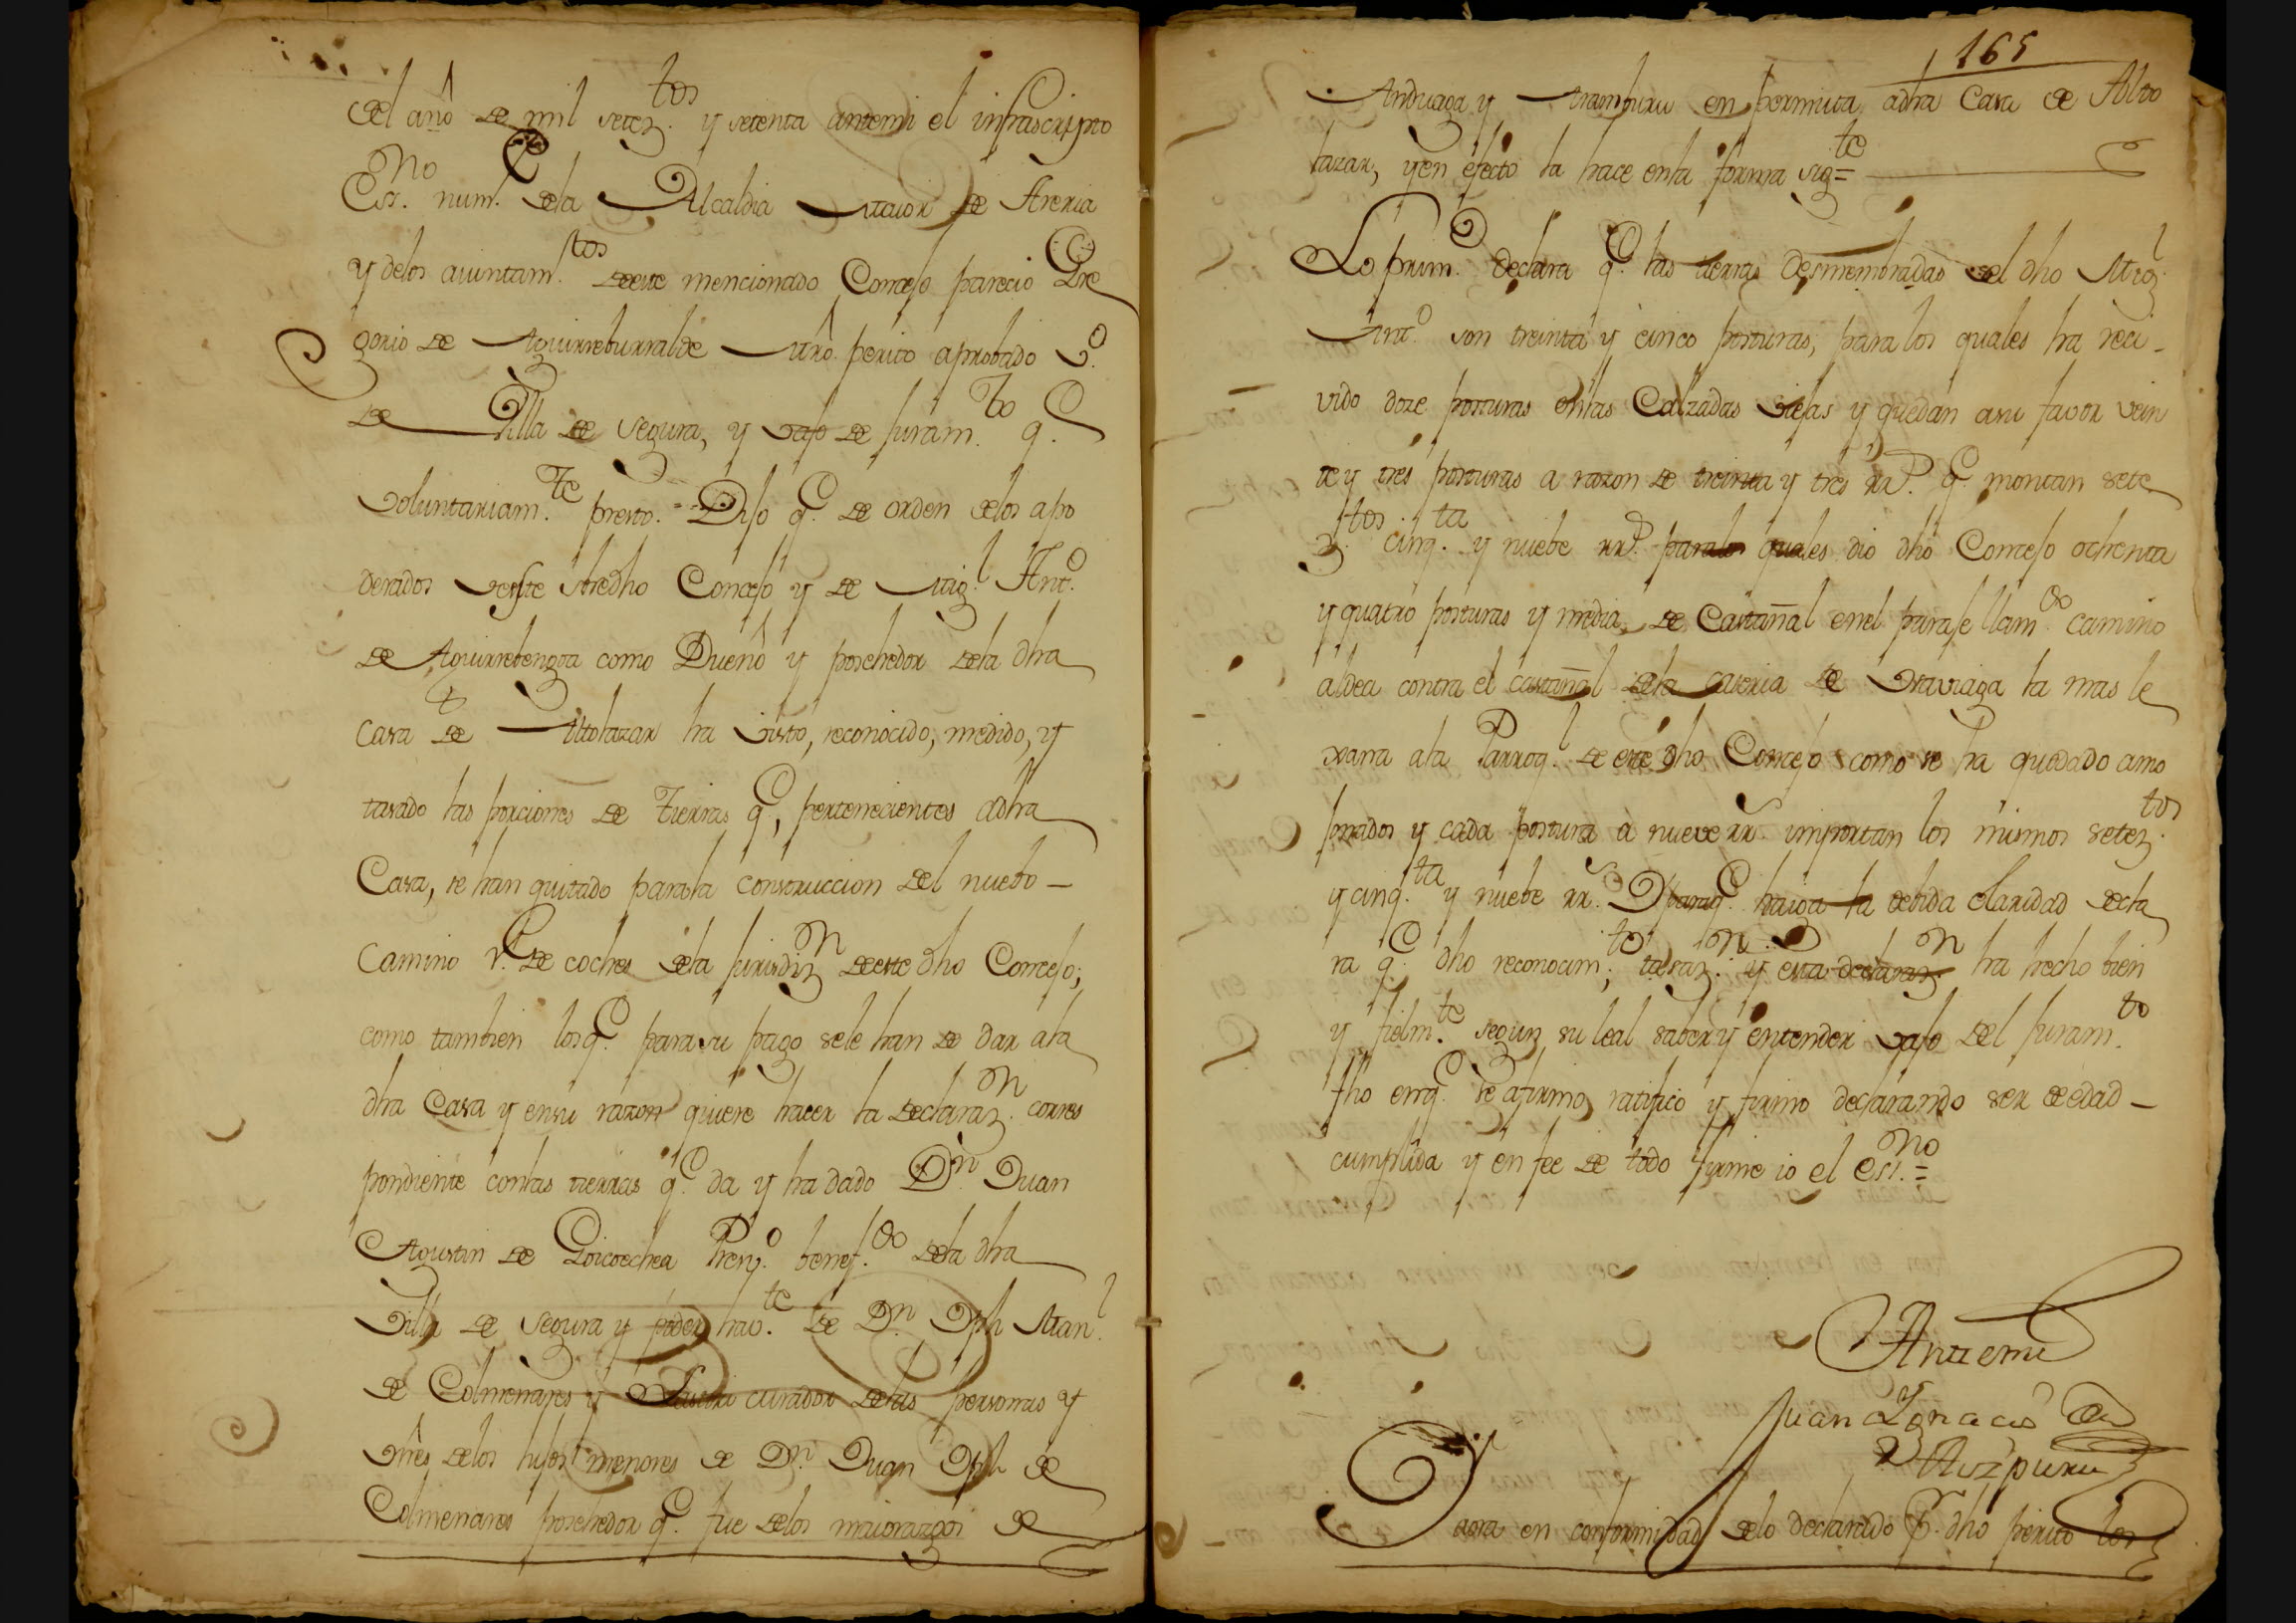 del año de mil setez.tos y setenta antemi el infrascripto
EsS.no num.l dela Alcaldia maior de Areria
y delos aiuntam.tos deeste mencionado Concejo parecio Gre
gorio de Aguirreburralde Mro perito aprobado V.o
de Villa de Segura, y vajo de juram.to q.e
voluntariam.te presto. Dijo q.e de orden delos apo
derados deeste sbredho Concejo y de Mig.l Ant.o
de Aguirrebengoa como Dueño y posehedor dela dha
Casa de Altolazar ha visto, reconocido, medido, y
tasado las porciones de Tierras q.e, pertenecientes adha
Casa, se han quitado parala construccion del nuebo
Camino r.l de coches dela jurisdiz.n deeste dho Concejo;
como tambien losq.e parasu pago sele han de dar ala
dha Casa y ensu razon quiere hacer la declaraz.n corres
pondiente conlas tierras q.e da y ha dado D.n Juan
Agustin de Goicoechea Presv.o benef.do dela dha
Villa de Segura y poder hav.te de D.n Jph Man.l
de Colmenares y curador delas personas y
vnes delos hijos menores de D.n Juan Jph de
Colmenares posehedor q.e fue delos maiorazgos de
165
Anduaga y transfiru en permuta adha Casa de Alto
lazar, y en efecto la hace enla forma sig.te =
Lo prim.o declara q.e las tierras desmembradas del dho Mig.l
Ant.o son treinta y cinco posturas, para los quales ha reci
vido doze posturas enlas Calzadas viejas y quedan asu favor vein
te y tres posturas a razon de treinta y tres rr.s q.e montan sete
z.tos cinq.ta y nuebe rr.s paralos quales dio dho Concejo ochenta
y quatro posturas y media de Castañal enel paraje llam.do camino
aldea contra el castañal dela caseria de Vraviaga la mas le
xana ala Parroq.l de este dho Concejo como se ha quedado amo
jonados y cada postura à nueve rr.s importan los mismos setez.tos
y cinq.ta y nuebe rr.s Y paraq.e haiga la debida claridad decla
ra q.e dho reconocim.to, tasaz.n y esta declaraz.n ha hecho bien
y fielm.te segun su leal saber y entender vajo del juram.to
fho enq.e se afirmo, ratifico y firmo declarando ser de edad
cumplida y en fee de todo firme io el ess.no =
Antemi
Juan Ignacio de
Aizpuru
Y aora en conformidad delo declarado p.r dho perito los